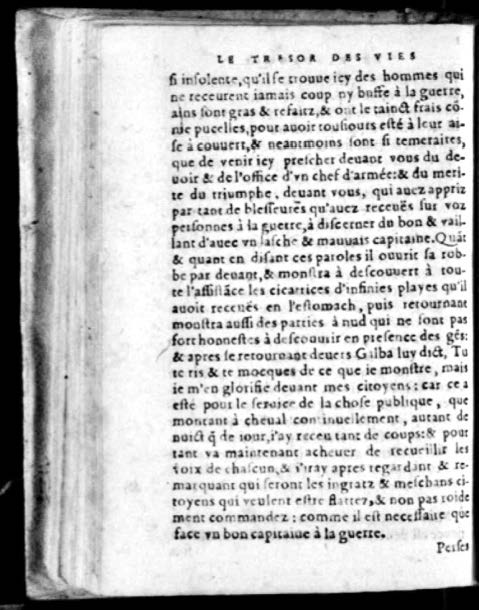 LE TRESOR DES VIES
si insolente, qu'il se trouue icy des hommes qui
ne receurent iamais coup ny buffe à la guerre,
ains sont gras & refaitz, & ont le tainct frais cō-
me pucelles, pour auoir tousiours esté à leur ai-
se à couuert, & neantmoins sont si temeraires,
que de venir icy prescher deuant vous du de-
uoir & de l'office d'vn chef d'armée: & du meri-
te du triumphe, deuant vous, qui auez appriz
par tant de blesseurēs qu'auez receuës sur voz
personnes à la guerre, à discerner du bon & vail-
lant d'auec vn lasche & mauuais capitaine. Quāt
& quant en disant ces paroles il ouurit sa rob-
be par deuant, & monstra à descouuert à tou-
te l'assistāce les cicatrices d'infinies playes qu'il
auoit receuës en l'estomach, puis retournant
monstra aussi des parties à nud qui ne sont pas
fort honnestes à descouurir en presence des gēs:
& apres se retournant deuers Galba luy dict, Tu
te ris & te mocques de ce que ie monstre, mais
ie m'en glorifie deuant mes citoyens: car ce a
esté pour le seruice de la chose publique, que
montant à cheual continuellement, autant de
nuict q̃ de iour, i'ay receu tant de coups: & pour
tant va maintenant acheuer de recueillir les
voix de chascun, & i'iray apres regardant & re-
marquant qui seront les ingratz & meschans ci-
toyens qui veulent estre flattez, & non pas roide
ment commandez: comme il est necessaire que
face vn bon capitaine à la guerre.
Perses